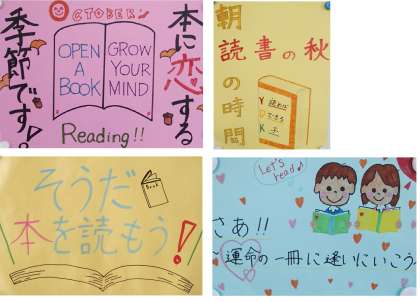 OCTOBER♪
本に恋する
季節です!
OPEN
A
BOOK
GROW
YOUR
MIND
Reading!!
朝
読書の秋
の
時
間
読めば
できる
子
そうだ
Book
本を読もう!
Let's
read♪
さあ!!
運命の一冊に逢いにいこう